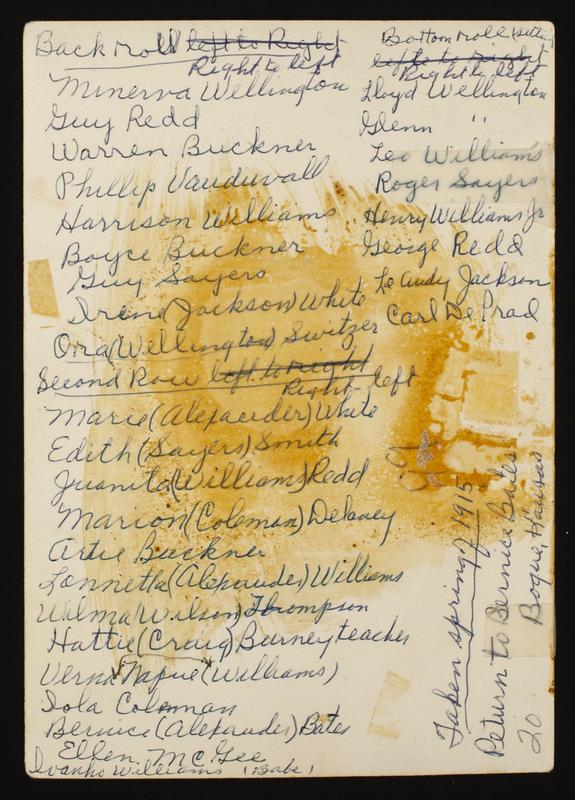 Back roll left to Right
Right to left
Minerva Wellington
Guy Redd
Warren Buckner
Phillip Vanduvall
Harrison Williams
Boyce Buckner
Guy Sayers
Irene (Jackson) White
Ora (Wellington) Switzer
Second Row left to right
Right - left
Marie (Alexander) White
Edith (Sayers) Smith
Juanita (Williams) Redd
Marion (Coleman) Delaney
Artie Buckner
Lonnetta (Alexander) Williams
Wilma (Wilson) Thompson
Hattie (Craig) Burney teacher
Verna Napue (Williams)
Iola Coleman
Bernice (Alexander) Bates
Ellen McGee
Ivanho Williams (Babe)
Bottom roll (sitting)
left to right
Right to left
Lloyd Wellington
Glenn "
Leo Williams
Roger Sayers
Henry Williams Jr
George Redd
Le Andy Jackson
Carl De Prad
Taken spring of 1915
Return to Bernice Bates
Bogue, Kansas
20